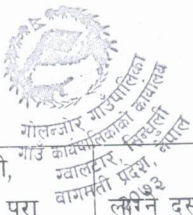 गोलन्जोर गाउँपालिका
गाउँ कार्यपालिकाको कार्यालय
ग्वालटार, सिन्धुली
बागमती प्रदेश, नेपाल
२०७३
ी,
परा
लाग्ने